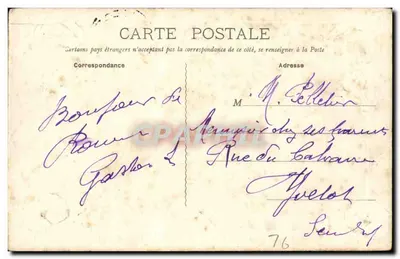 CARTE POSTALE
Certains pays étrangers n'acceptent pas la correspondance de ce côté, se renseigner à la Poste
Correspondance
Adresse
Bonjour de
Rouen
Gaston L
M. Pelletier
chez ses parents
Rue du Calvaire
Yvetot
76